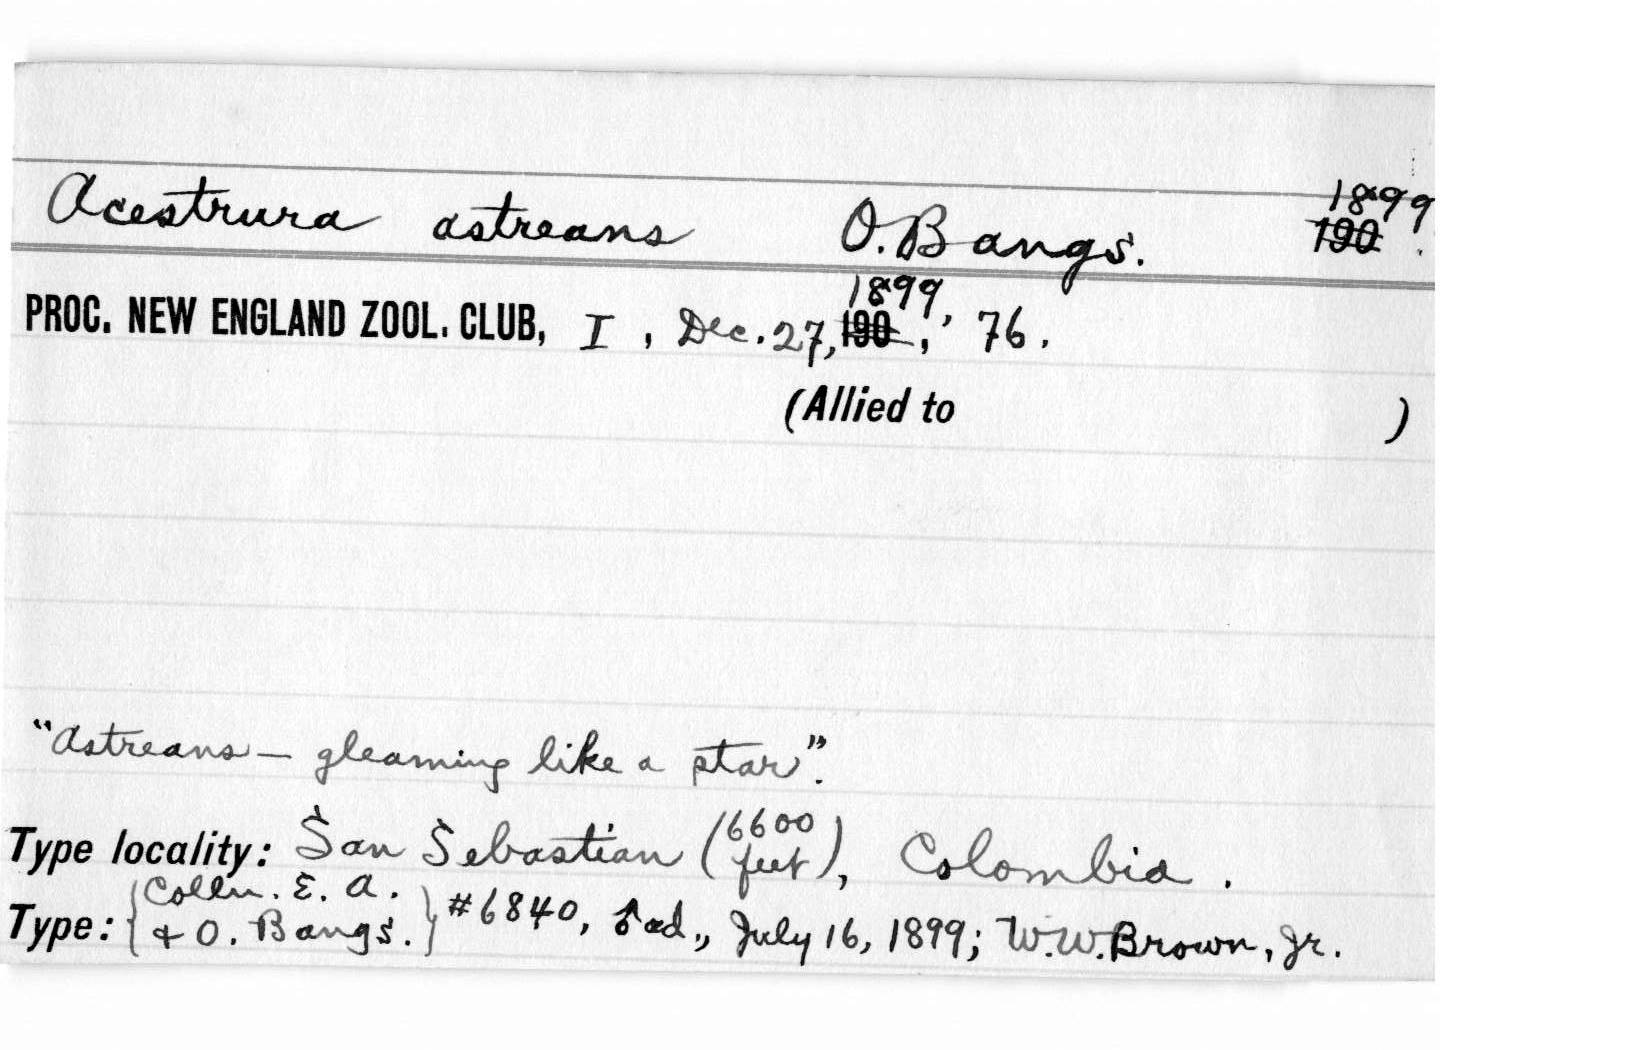 Acestrura astreans O. Bangs. 1899
190 .
PROC. NEW ENGLAND ZOOL. CLUB, I, Dec. 27, 190 1899, 76.
(Allied to )
"Astreans — gleaming like a star".
Type locality: San Sebastian (6600 feet), Colombia.
Type: {Colln. E. A. & O. Bangs.} #6840, ♂ ad., July 16, 1899; W.W. Brown, Jr.